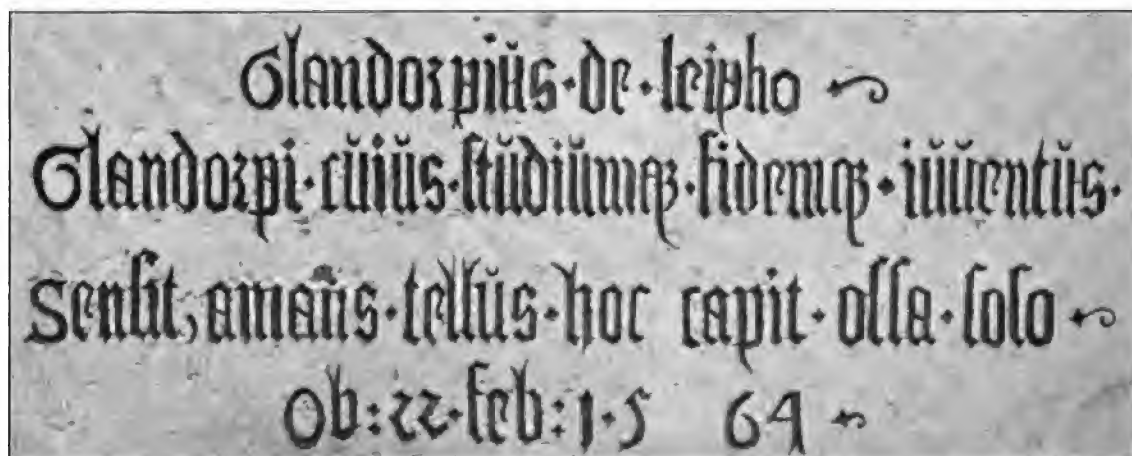 Glandorpiŭs · de · ſeipſo
Glandorpi · cŭiŭs · ſtŭdiŭmqꝫ · fidemqꝫ · iŭŭentŭs ·
Senſit, amañs · tellŭs · hoc capit · oſſa · ſolo
Ob: 22 · feb: 1 · 5 64